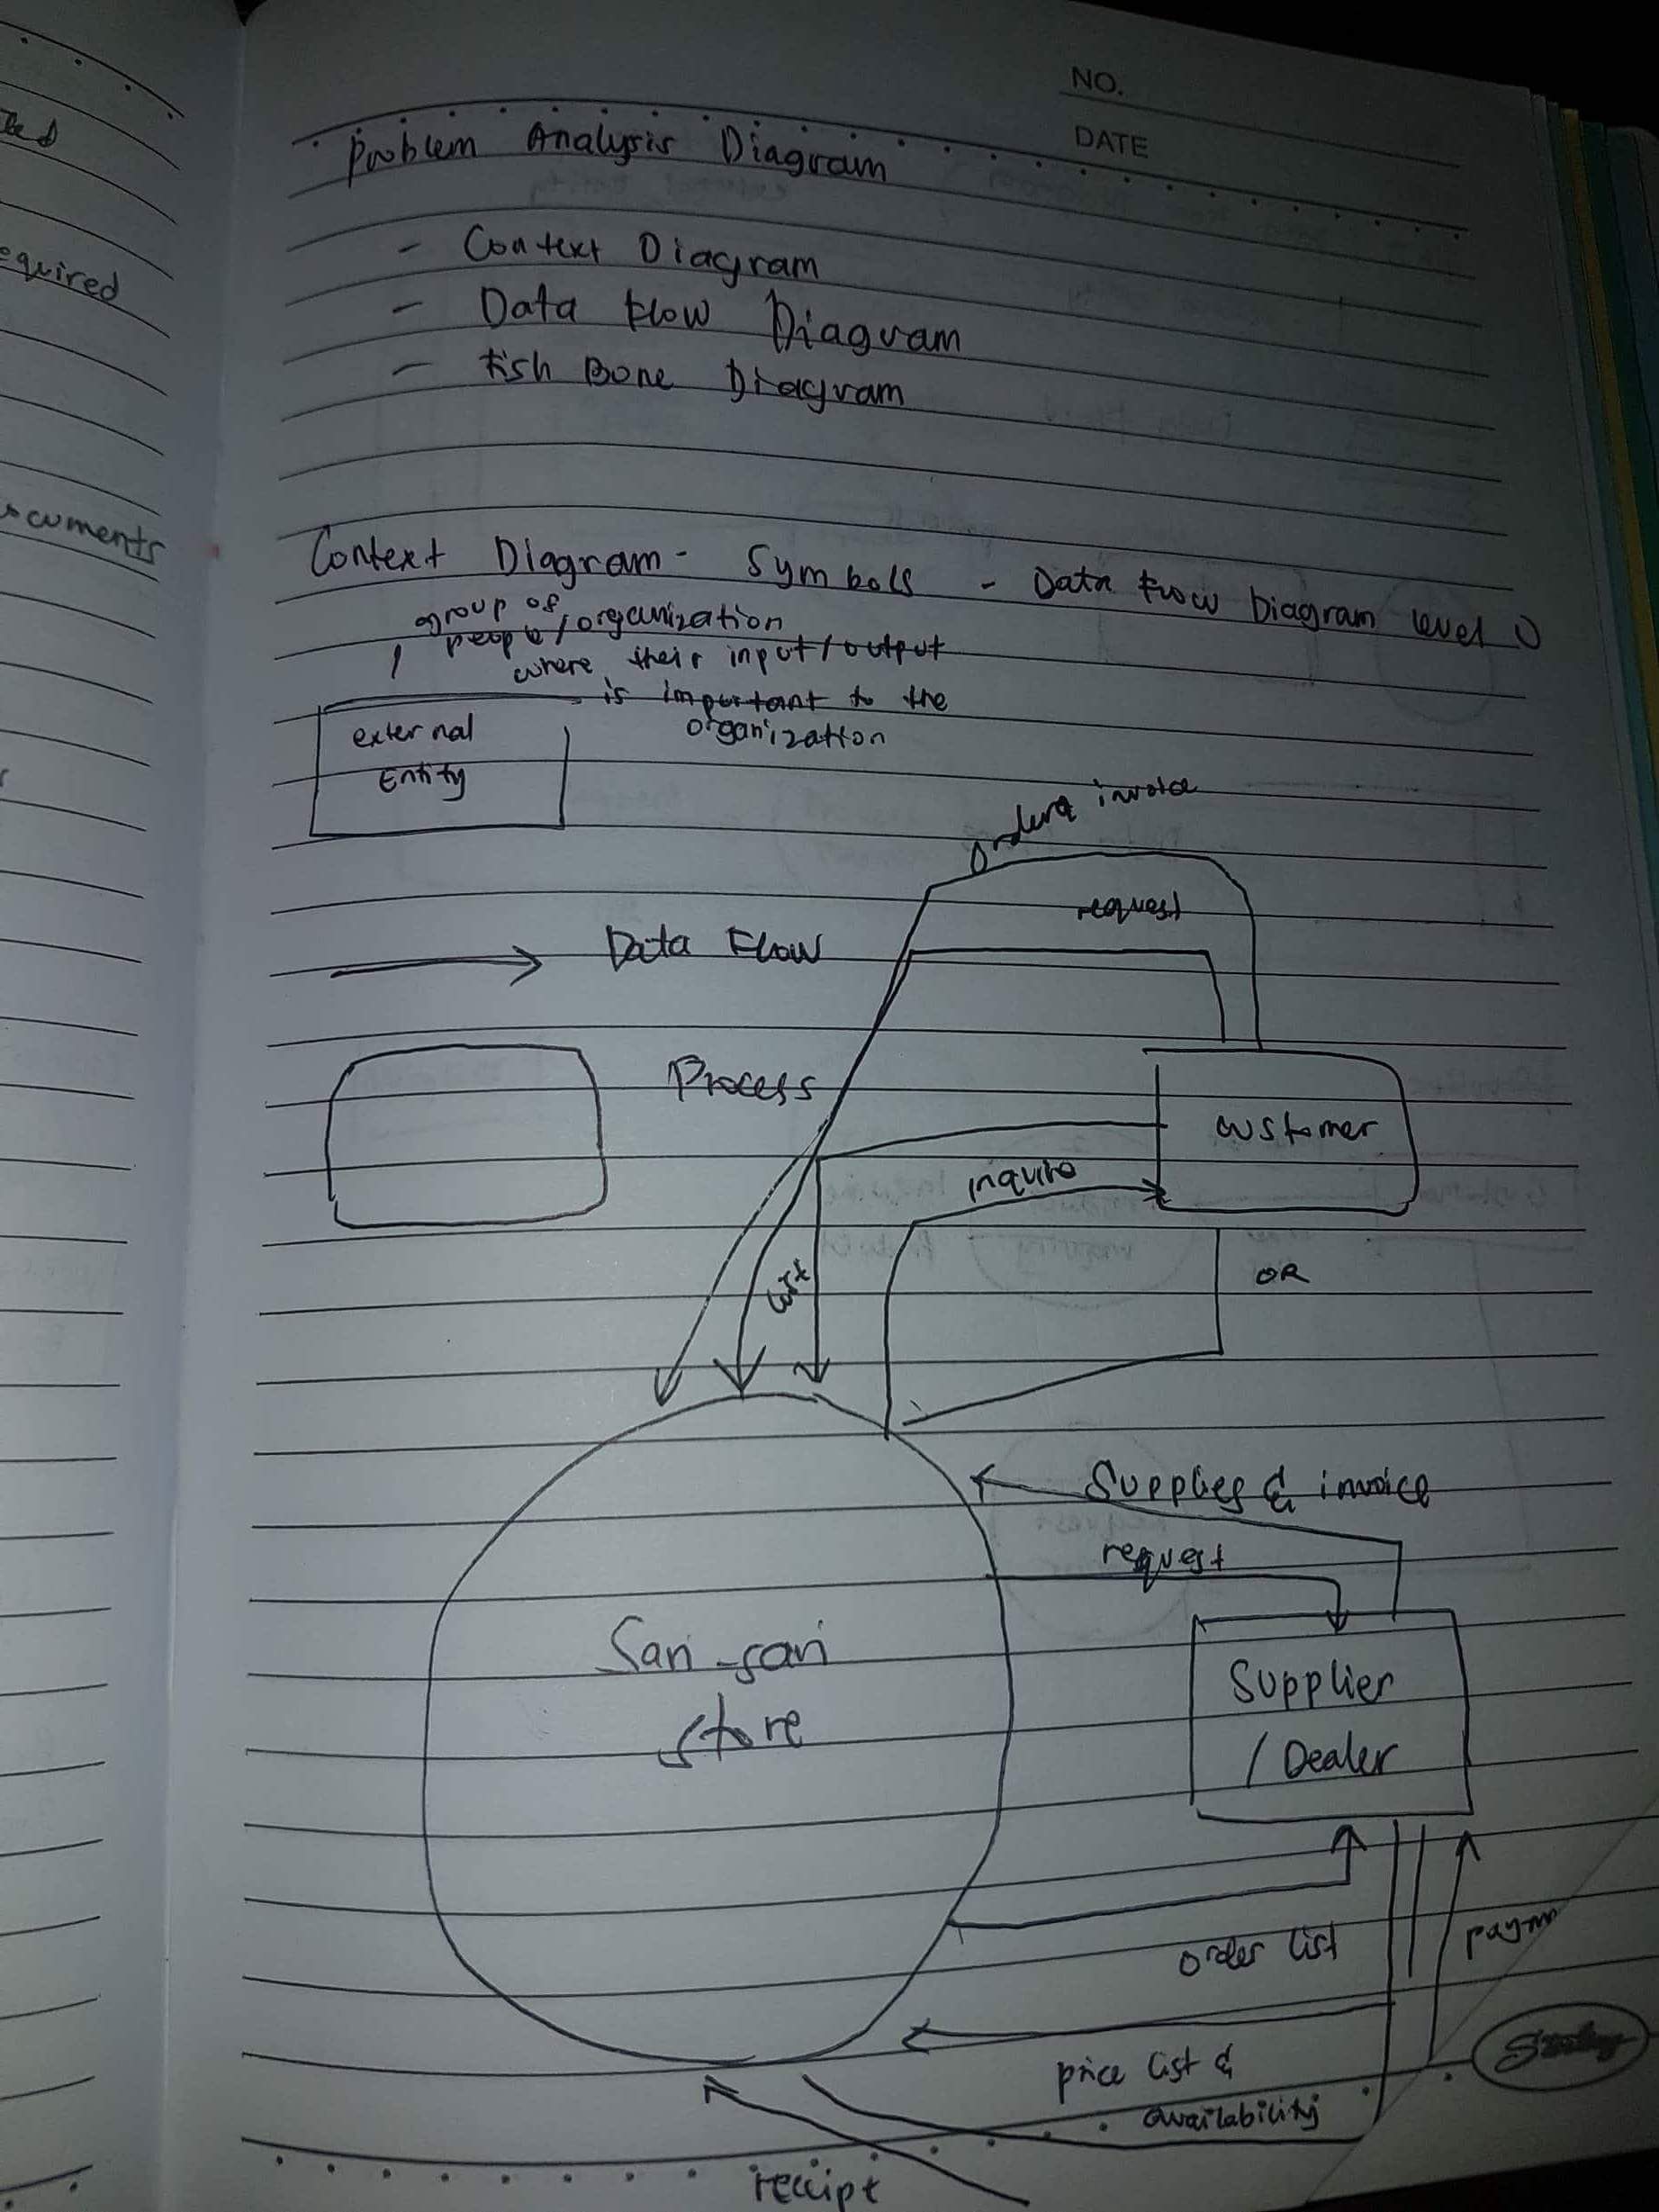 NO.
DATE
Problem Analysis Diagram
- Context Diagram
- Data Flow Diagram
- Fish Bone Diagram
Context Diagram - Symbols - Data Flow Diagram level 0
group of
people / organization
where their input / output
is important to the
organization
external
Entity
invoice
request
Data Flow
Process
customer
inquire
OR
Supplies & invoice
request
Sari-sari
store
Supplier
/ Dealer
order list
paym
price list &
availability
receipt
equired
cuments